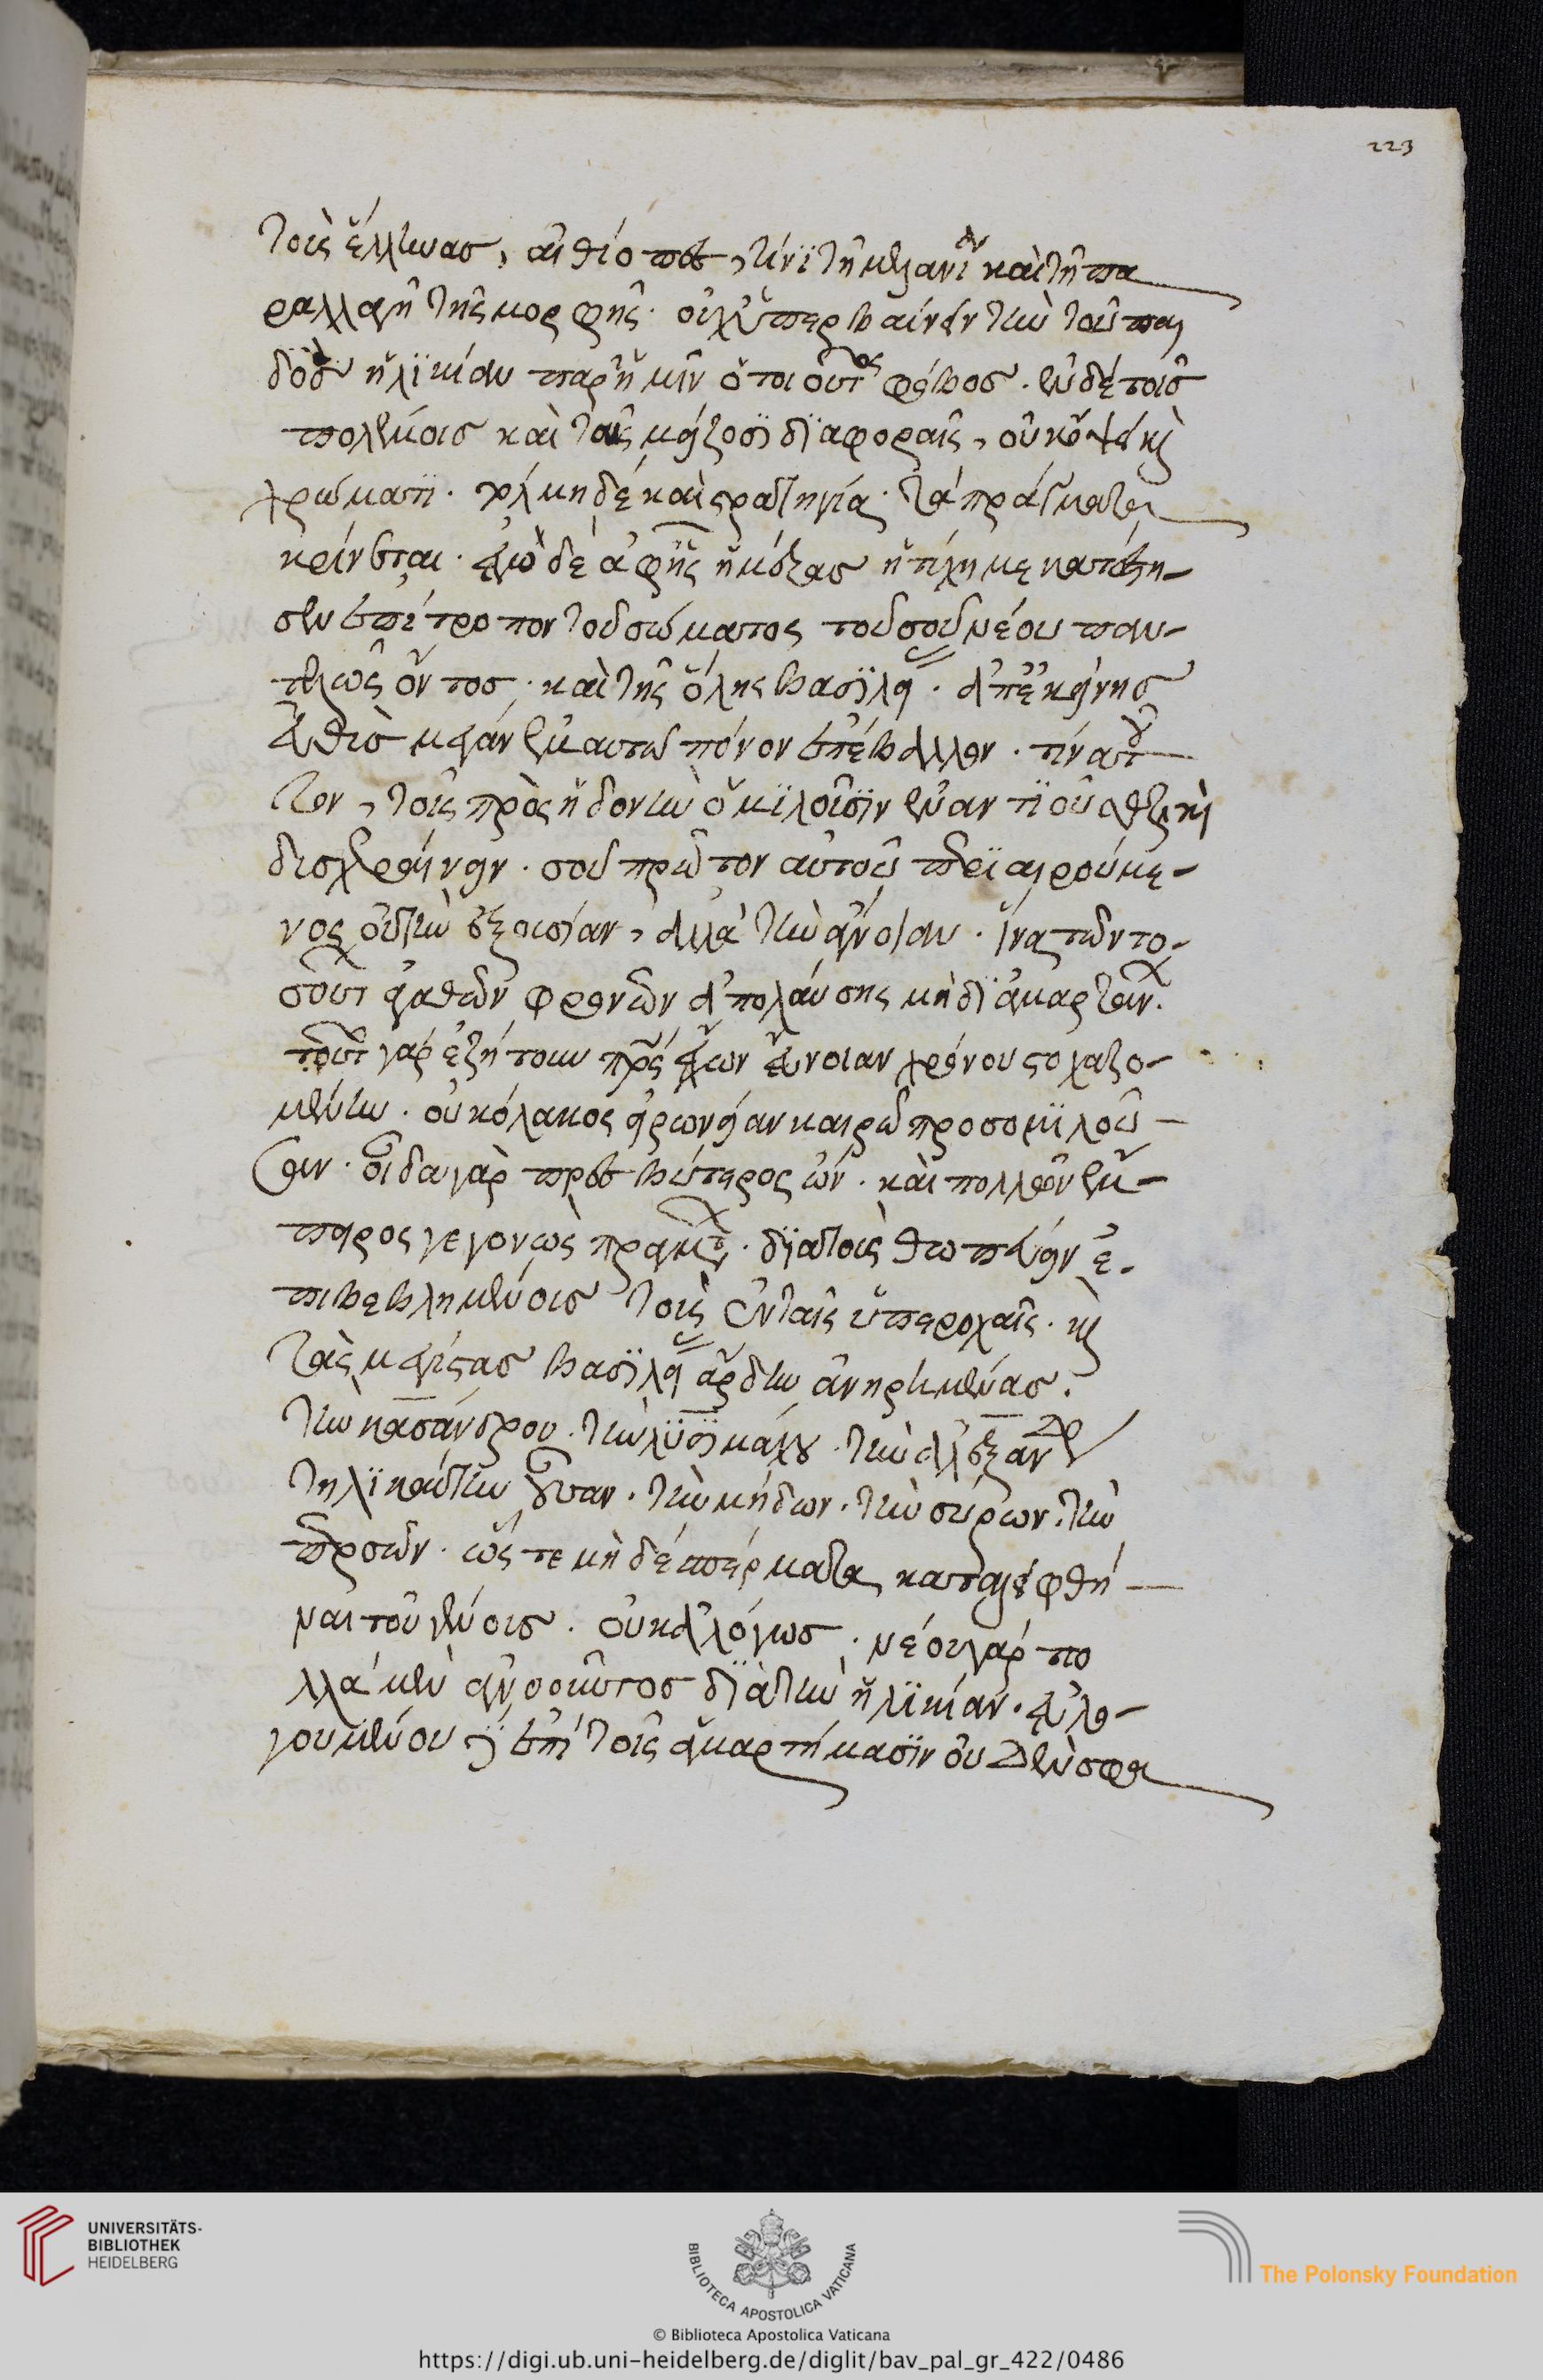 223
τοὺς ἕλληνας, αἰθίοπες, τινὶ τῇ μελανίᾳ καὶ τῇ πα
ραλλαγῇ τῆς μορφῆς. οὐχ ὑπερβαίνειν τὴν τοῦ παι
δὸς ἡλικίαν παρ' ἡμῖν ὁ τοιοῦτος φόβος. ἐν δὲ τοῖς
πολεμίοις καὶ ταῖς μείζοσι διαφοραῖς, οὐκ ὄψει καὶ
χρώματι. τόλμῃ δὲ καὶ στρατηγίᾳ. τὰ πράγματα
κρίνεται. ἐγὼ δὲ ἀφ' ἧς ἡμέρας ἡ τύχη με κατέστη-
σεν ἐπίτροπον τοῦ σώματος τοῦ σοῦ νέου παν-
τελῶς ὄντος. καὶ τῆς ὅλης βασιλεί. ἀπ' ἐκείνης
εὐθὺς μέγαν ἐμαυτῷ πόνον ἐπέβαλλον.
τον, τοῖς πρὸς ἡδονὴν ὁμιλοῦσιν ἐναντιοῦσθαι καὶ
δυσχεραίνειν. σοῦ πρῶτον αὐτοῦ περιαιρούμε-
νος οὐ τὴν ἐξουσίαν, ἀλλὰ τὴν ἄνοιαν. ἵνα τῶν το-
σούτ ἀγαθῶν φρονῶν ἀπολαύσῃς μὴ διαμαρτάνων.
τοῦτ γὰρ ἐζήτουν πρὸς εὔνοιαν χρόνου στοχαζο-
μένην. οὐ κόλακος εἰρωνείαν καιρῷ προσομιλοῦ-
σαν. οἶδα γὰρ πρεσβύτερος ὤν. καὶ πολλῶν ἔμ-
πειρος γεγονὼς πραγμτ. διὰ τοὺς θωπεύειν ἐ-
πιβεβλημένους τοὺς ἐν ταῖς ὑπεροχαῖς. καὶ
τὰς μεγίστας βασιλεί ἄρδην ἀνῃρημένας.
τὴν κασάνδρου. τὴν λυσιμάχου. τὴν ἀλεξάνδρ
τηλικαύτην οὖσαν. τὴν μήδων. τὴν σύρων. τὴν
περσῶν. ὥστε μηδὲ σπέρματα καταλειφθῆ-
ναι τοῦ γένους. οὐκ ἀλόγως. νέου γὰρ πο
λλὰ μὲν ἀγνοοῦντος διὰ τὴν ἡλικίαν. εὐλο-
γουμένου δὲ ἐπὶ τοῖς ἁμαρτήμασιν οὐδὲν σφα
UNIVERSITÄTS-
BIBLIOTHEK
HEIDELBERG
BIBLIOTECA APOSTOLICA VATICANA
The Polonsky Foundation
© Biblioteca Apostolica Vaticana
https://digi.ub.uni-heidelberg.de/diglit/bav_pal_gr_422/0486